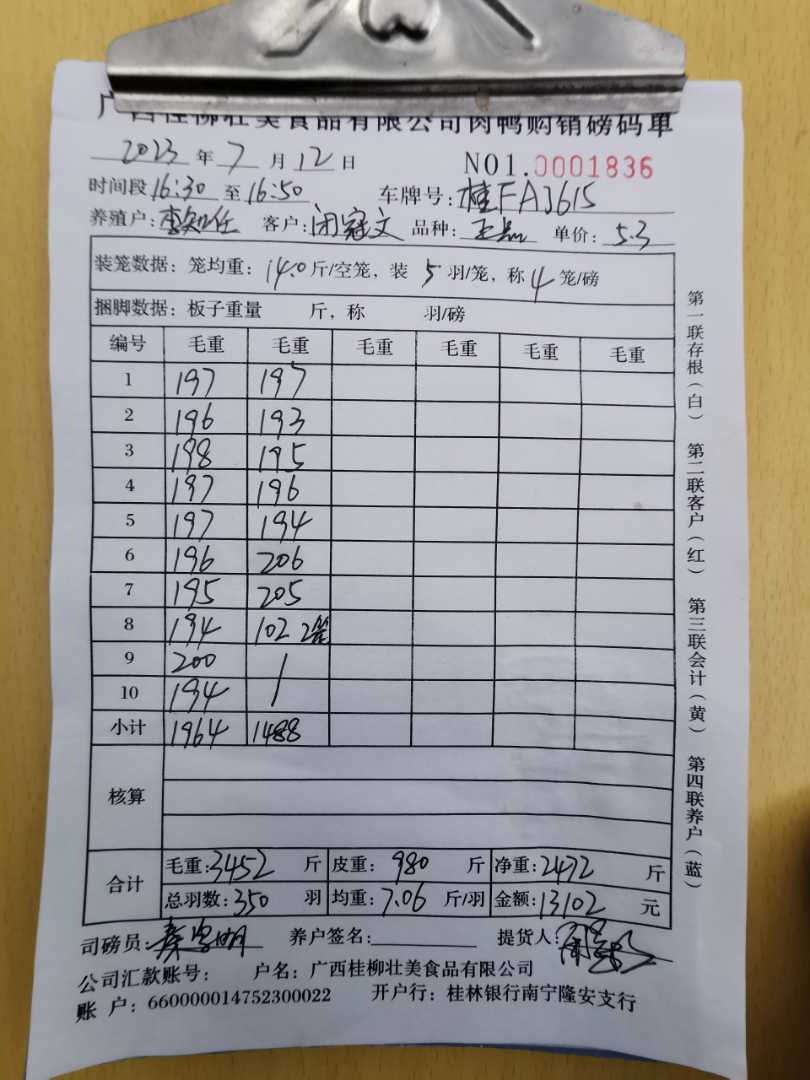 广西桂柳壮美食品有限公司肉鸭购销磅码单
2023年7月12日 NO1.0001836
时间段16:30至16:50 车牌号:桂FA3615
养殖户: 客户:闭冠文 品种: 单价:5.3
装笼数据:笼均重:14.0斤/空笼,装5羽/笼,称4笼/磅
捆脚数据:板子重量 斤,称 羽/磅
编号 毛重 毛重 毛重 毛重 毛重 毛重
1 197 197
2 196 193
3 198 195
4 197 196
5 197 194
6 196 206
7 195 205
8 194 102 2笼
9 200 /
10 194 /
小计 1964 1488
核算
合计 毛重:3452斤 皮重:980斤 净重:2472斤
总羽数:350羽 均重:7.06斤/羽 金额:13102元
司磅员: 养户签名: 提货人:
公司汇款账号: 户名:广西桂柳壮美食品有限公司
账户:660000014752300022 开户行:桂林银行南宁隆安支行
第一联存根(白) 第二联客户(红) 第三联会计(黄) 第四联养户(蓝)